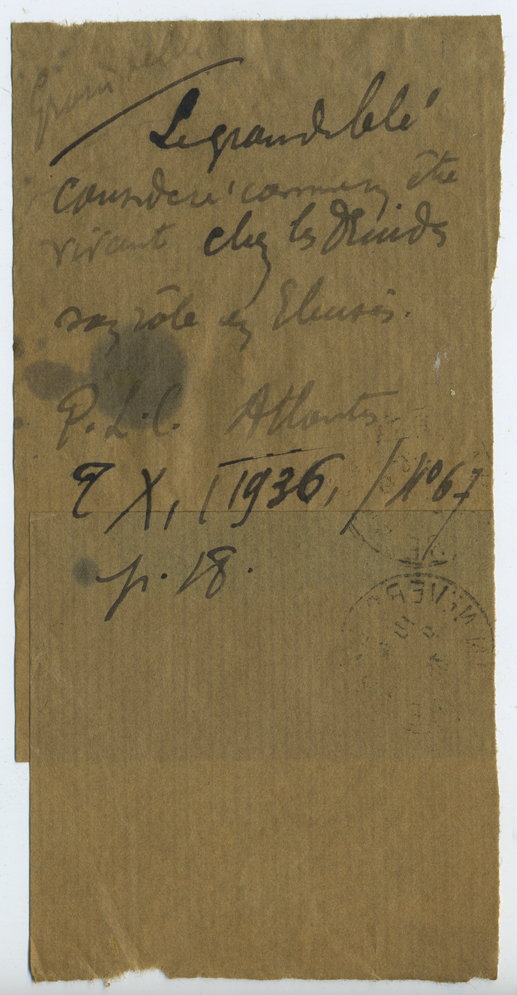 Grain de blé
Le grain de blé
considéré comme un être
vivant chez les Druides
son rôle en Eleusis.
P. L. C. Atlantis
T X, 1936, N° 67
p. 18.